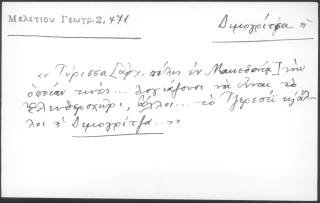 Μελετίου Γεωγρ. 2, 471
Διμογρίτζα ἡ
« Τύρισσα [ἀρχ. πόλις ἐν Μακεδονίᾳ] τὴν
ὁποίαν τινές... λογιάζουσι νὰ εἶναι τὸ
Ἐλευθεροχῶρι, ἄλλοι... τὸ Τζερεσεΐ κ(αὶ) ἄλ-
λοι ἡ Διμογρίτζα..»